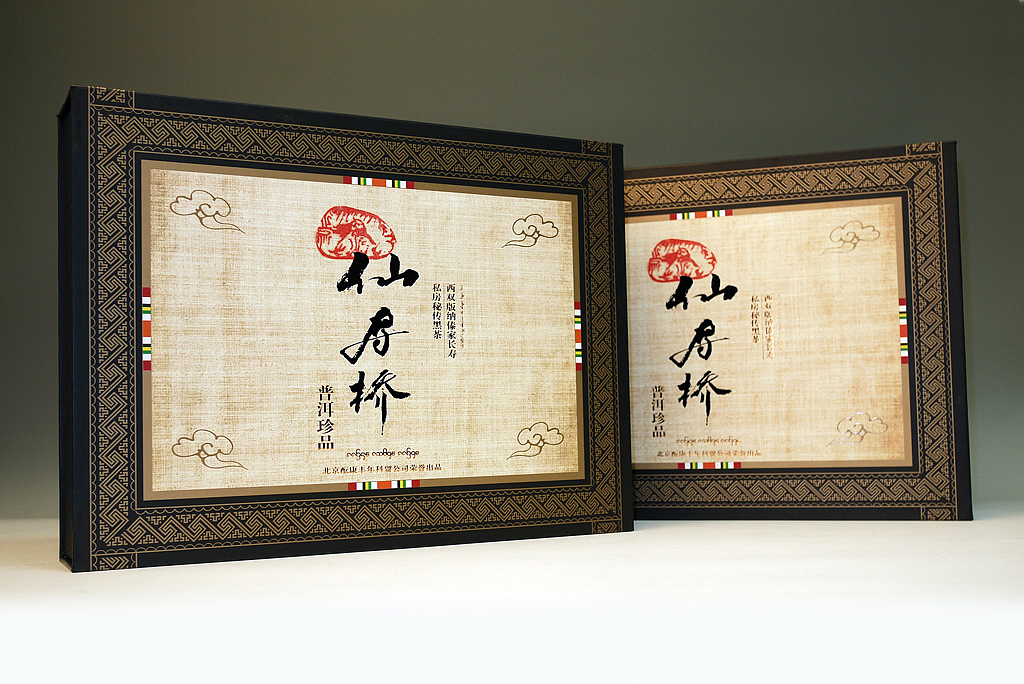 西双版纳傣家长寿
私房秘传黑茶
仙寻桥
普洱珍品
北京酝康丰年科贸公司荣誉出品
西双版纳傣家长寿
私房秘传黑茶
仙寻桥
普洱珍品
北京酝康丰年科贸公司荣誉出品